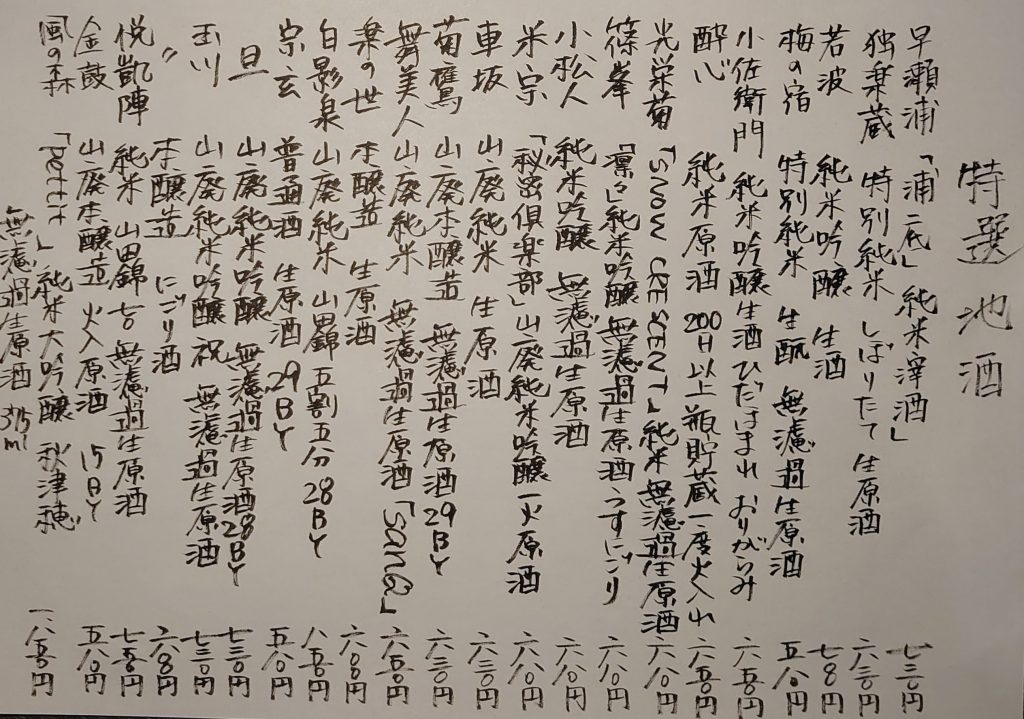 特選 地酒
早瀬浦 「浦底」純米滓酒」 七三〇円
独楽蔵 特別純米 しぼりたて 生原酒 六三〇円
若波 純米吟醸 生酒 円
梅の宿 特別純米 生酛 無濾過生原酒 五八〇円
小佐衛門 純米吟醸生酒 ひだほまれ おりがらみ 六五〇円
酔心 純米原酒 200日以上瓶貯蔵一度火入レ 六五〇円
光栄菊 「SNOW CRESCENT」純米無濾過生原酒 六八〇円
篠峯 「凛々」純米吟醸 無濾過生原酒うすにごり 六八〇円
小松人 純米吟醸 無濾過生原酒 六八〇円
米宗 「秘密倶楽部」山廃純米吟醸一火原酒 六八〇円
車坂 山廃純米 生原酒 六三〇円
菊鷹 山廃本醸造 無濾過生原酒29BY 六三〇円
舞美人 山廃純米 無濾過生原酒「SanQ」 六五〇円
楽の世 本醸造 生原酒 六〇〇円
白影泉 山廃純米 山田錦 五割五分 28BY 八五〇円
宗玄 普通酒 生原酒 29BY 円
旦 山廃純米吟醸 無濾過生原酒28BY 七三〇円
玉川 山廃純米吟醸 祝 無濾過生原酒 七三〇円
〃 本醸造 にごり酒 六八〇円
悦凱陣 純米 山田錦七〇 無濾過生原酒 七五〇円
金鼓 山廃本醸造 火入原酒 15BY 五八〇円
風の森 「Petit」純米大吟醸 秋津穂 一八五〇円
無濾過生原酒 375ml